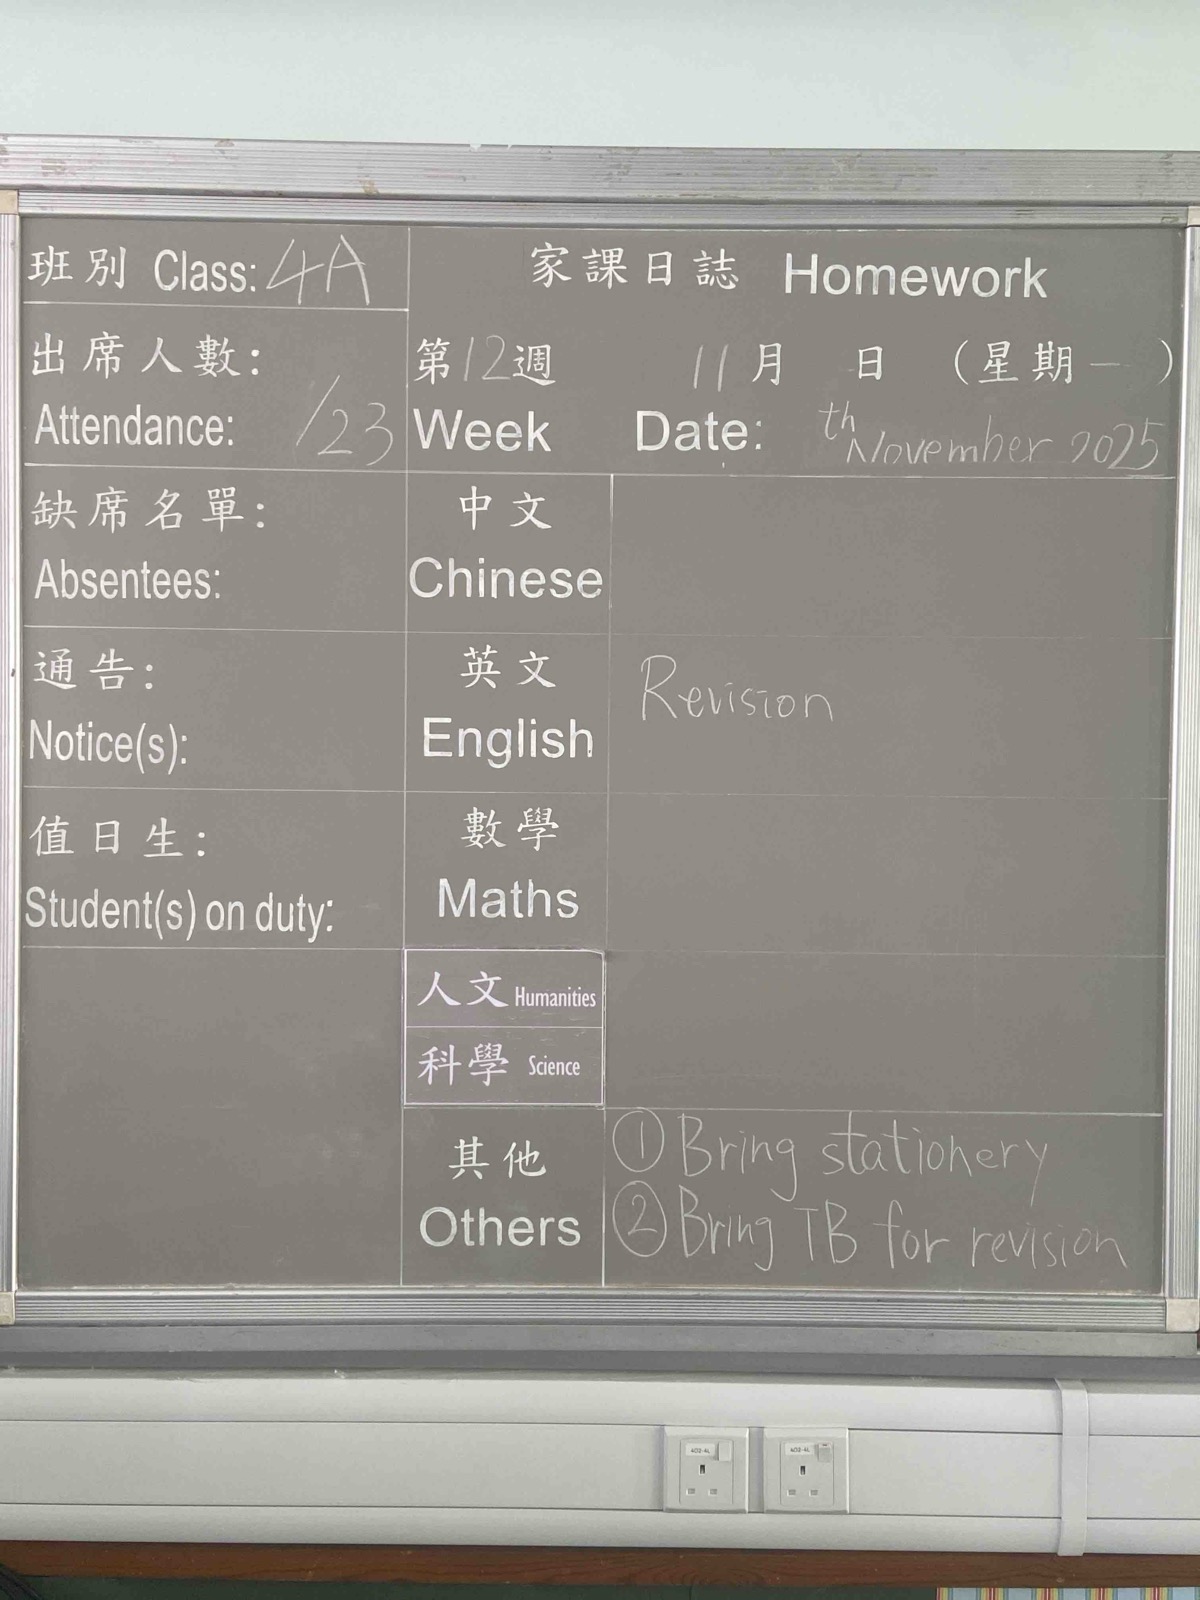 班別 Class: 4A
家課日誌 Homework
出席人數:
Attendance: /23
第12週 11月 日 (星期一)
Week Date: th November 2025
缺席名單:
Absentees:
中文
Chinese
通告:
Notice(s):
英文
English
Revision
值日生:
Student(s) on duty:
數學
Maths
人文 Humanities
科學 Science
其他
Others
① Bring stationery
② Bring TB for revision